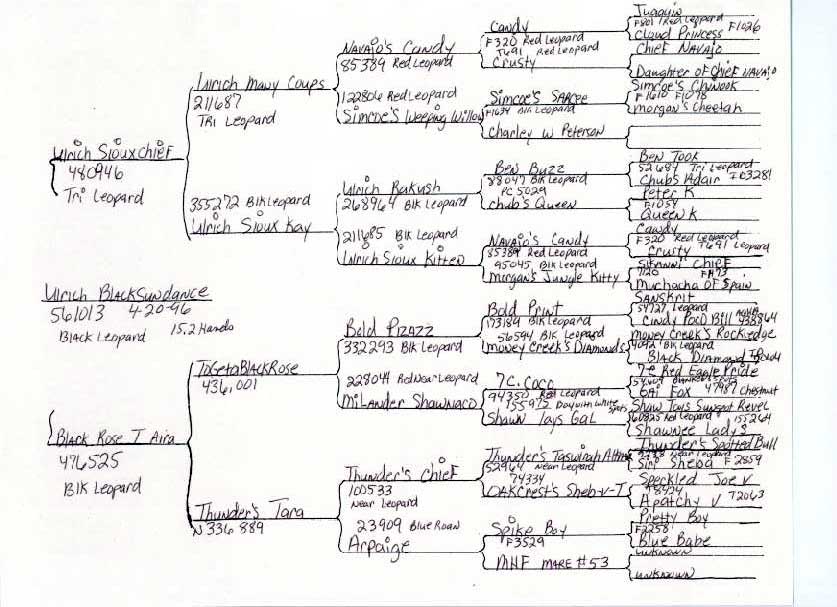 Ulrich BlackSundance
561013 4-20-96
Black Leopard 15.2 Hands
Ulrich SiouxChief
480946
Tri Leopard
Black Rose T Aira
476525
Blk Leopard
Ulrich Many Coups
211687
Tri Leopard
355272 Blk Leopard
Ulrich Sioux Kay
ToGetaBlackRose
436,001
Thunder's Tara
N336889
Navajo's Candy
85389 Red Leopard
122806 Red Leopard
Simcoe's Weeping Willow
Ulrich Rakush
268964 Blk Leopard
211685 Blk Leopard
Ulrich Sioux Kitten
Bold Pizazz
332293 Blk Leopard
228044 Red Near Leopard
Milander Shawnaco
Thunder's Chief
100533
Near Leopard
23909 Blue Roan
Arpaige
Candy
F320 Red Leopard
T691 Red Leopard
Crusty
Simcoe's Sarcee
F1634 Blk Leopard
Charley W Peterson
Ben Buzz
88047 Blk Leopard
PC 5029
Chub's Queen
Navajo's Candy
85389 Red Leopard
95045 Blk Leopard
Morgan's Jungle Kitty
Bold Print
173189 Blk Leopard
56594 Blk Leopard
Money Creek's Diamonds
7C. Coco
94350 Red Leopard
155975
Shawn Tays Gal
Thunder's Taswirah
52964 Near Leopard
74334
OAKCrest's Sheb-v-T
Spike Boy
F3529
MHF Mare #53
F801 Red Leopard
Cloud Princess F1026
Chief Navajo
Daughter of Chief Navajo
Simcoe's Chinook
F1610 F1078
Morgan's Cheetah
Ben Took
52687 Tri Leopard
Chub's Adair F03281
Peter K
F1054
Queen K
Candy
F320 Red Leopard
Crusty T691 Leopard
Chief
1120 F1173
Muchacha of Spain
Sanskrit
54727 Leopard
Cindy Poco Bill 438864
Money Creek's Rockledge
4092 Blk Leopard
Black Diamond
7C Red Eagle Pride
Fox 47987 Chestnut
Shaw Tays Sunspot Revel
Red Leopard 155264
Shawnee Lady S
Thunder's Spotted Bull
Near Leopard
Siri Sheba F2859
Speckled Joe V
T8424
Apatchy V T2063
Pretty Boy
F2258
Blue Babe
Unknown
Unknown